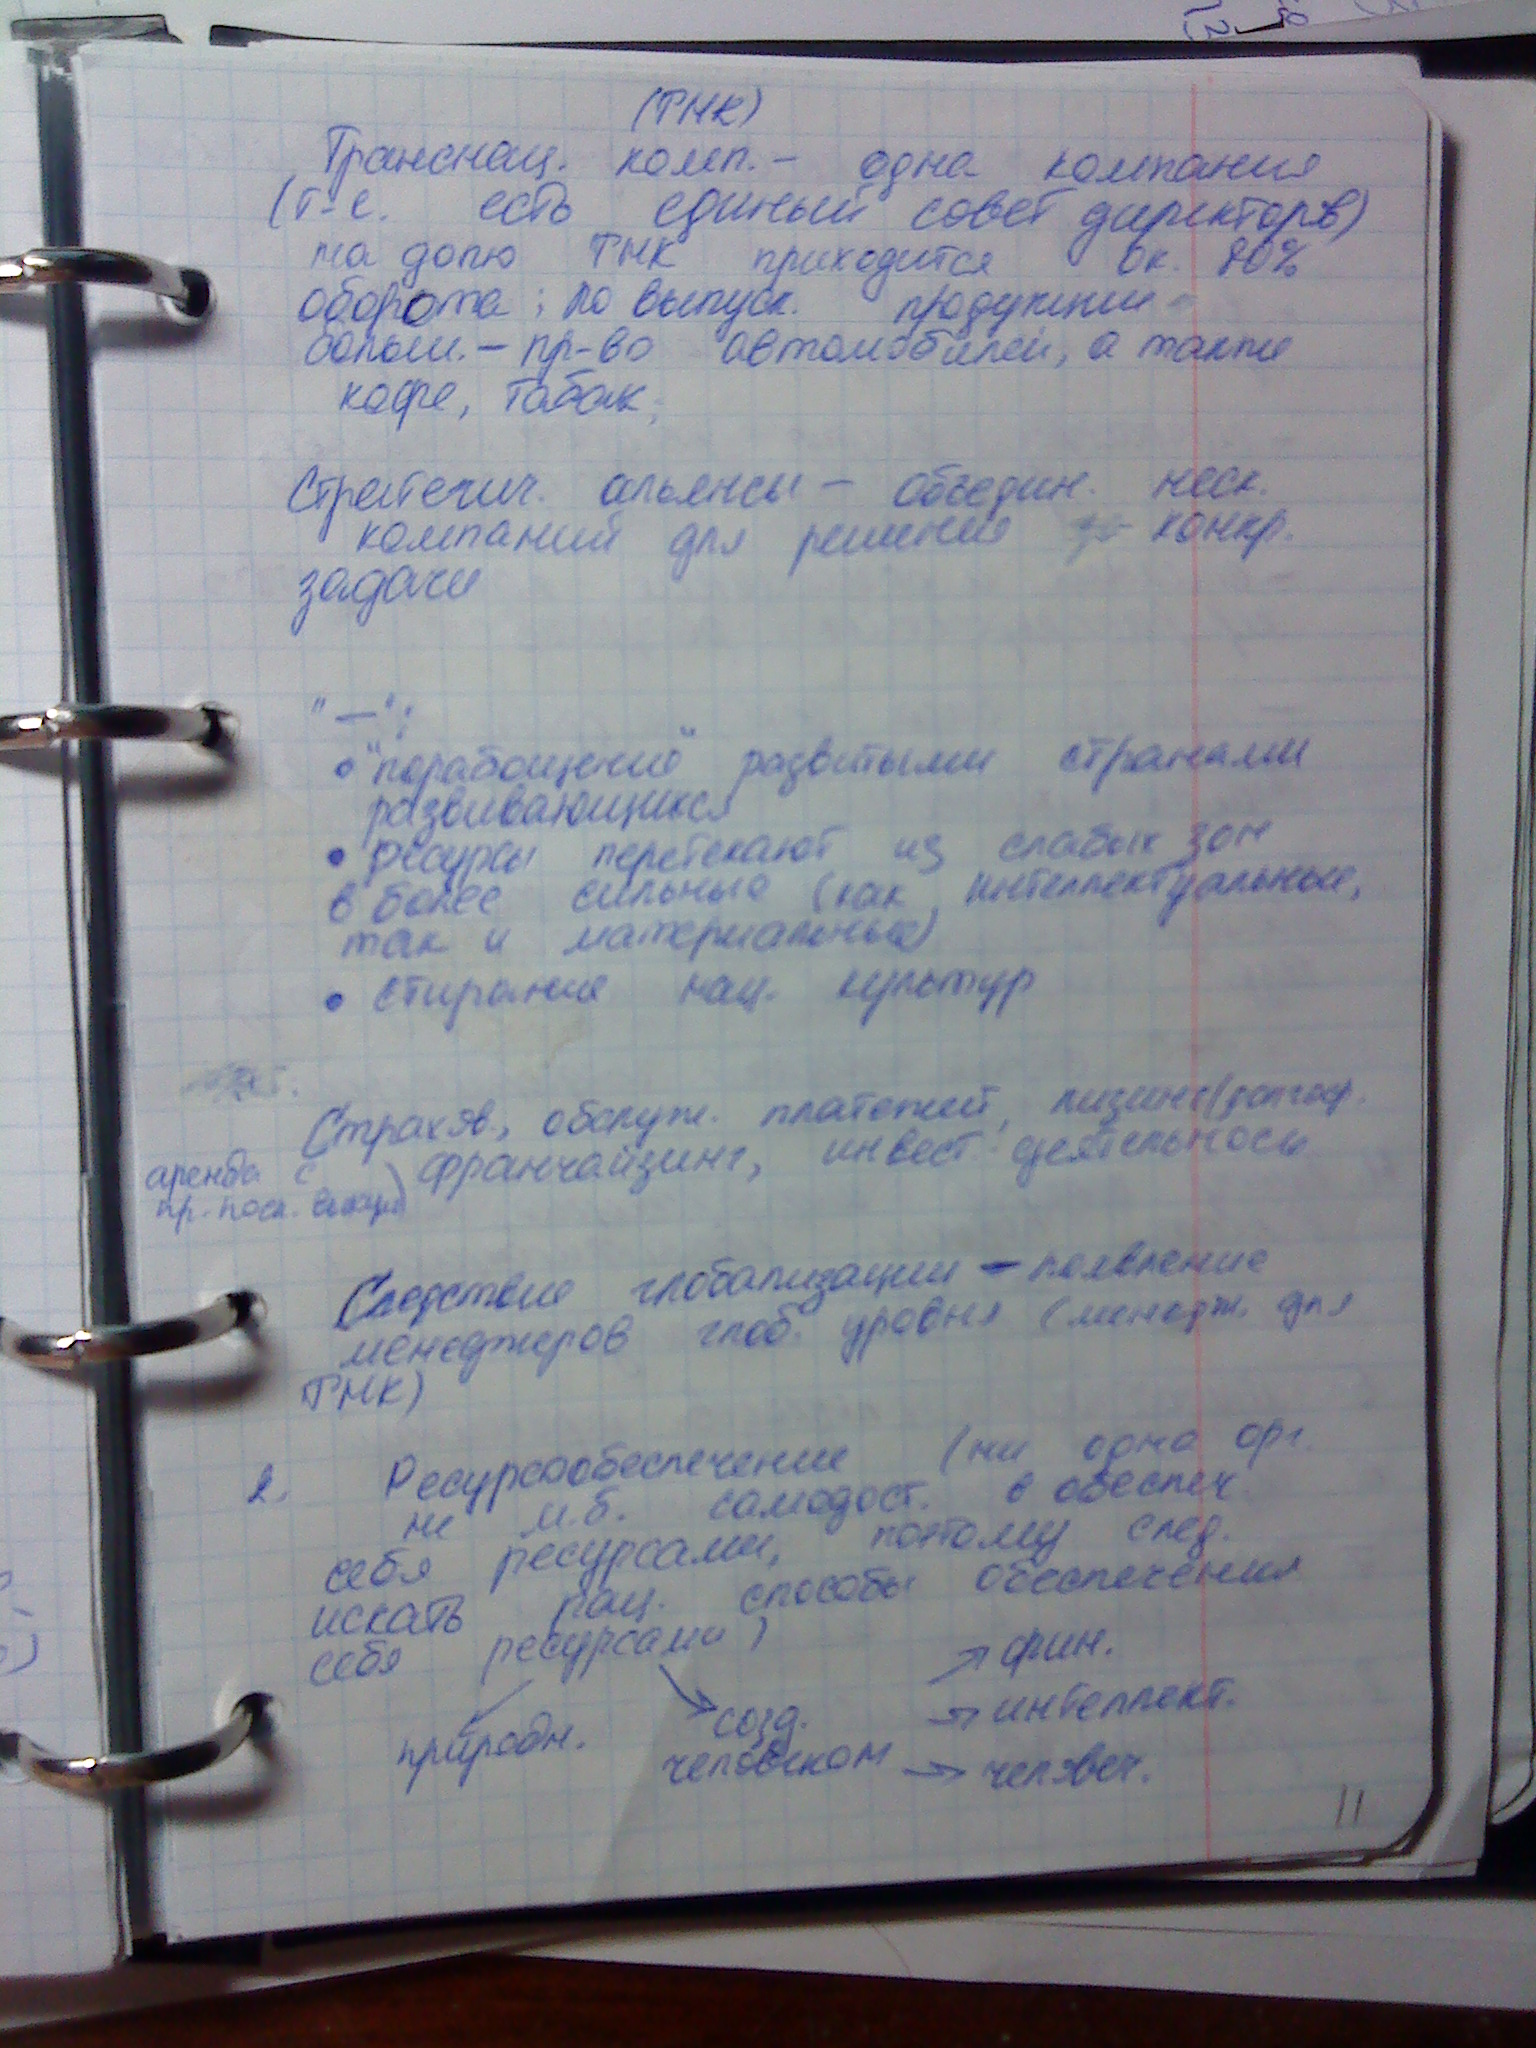 (ТНК)
Транснац. комп. - одна компания
(т-е. есть единый совет директоров)
на долю ТНК приходится ок. 80%
оборота; по выпуск. продукции
больш. - пр-во автомобилей, а также
кофе, табак;
Стратегич. альянсы - объедин. неск.
компаний для решения конкр.
задачи
"—":
• "порабощение" развитыми странами
развивающихся
• ресурсы перетекают из слабых зон
в более сильные (как интеллектуальные,
так и материальные)
• стирание нац. культур
Страхов., обслуж. платежей, лизинг (долгоср.
аренда с
пр. посл. выкупа) франчайзинг, инвест. деятельнось
Следствие глобализации - появление
менеджеров глоб. уровня (менедж. для
ТНК)
2. Ресурсообеспечение (ни одна орг.
не м.б. самодост. в обеспеч.
себя ресурсами, поэтому след.
искать рац. способы обеспечения
себя ресурсами)
природн.
созд.
человеком
→ фин.
→ интеллект.
→ человеч.
11